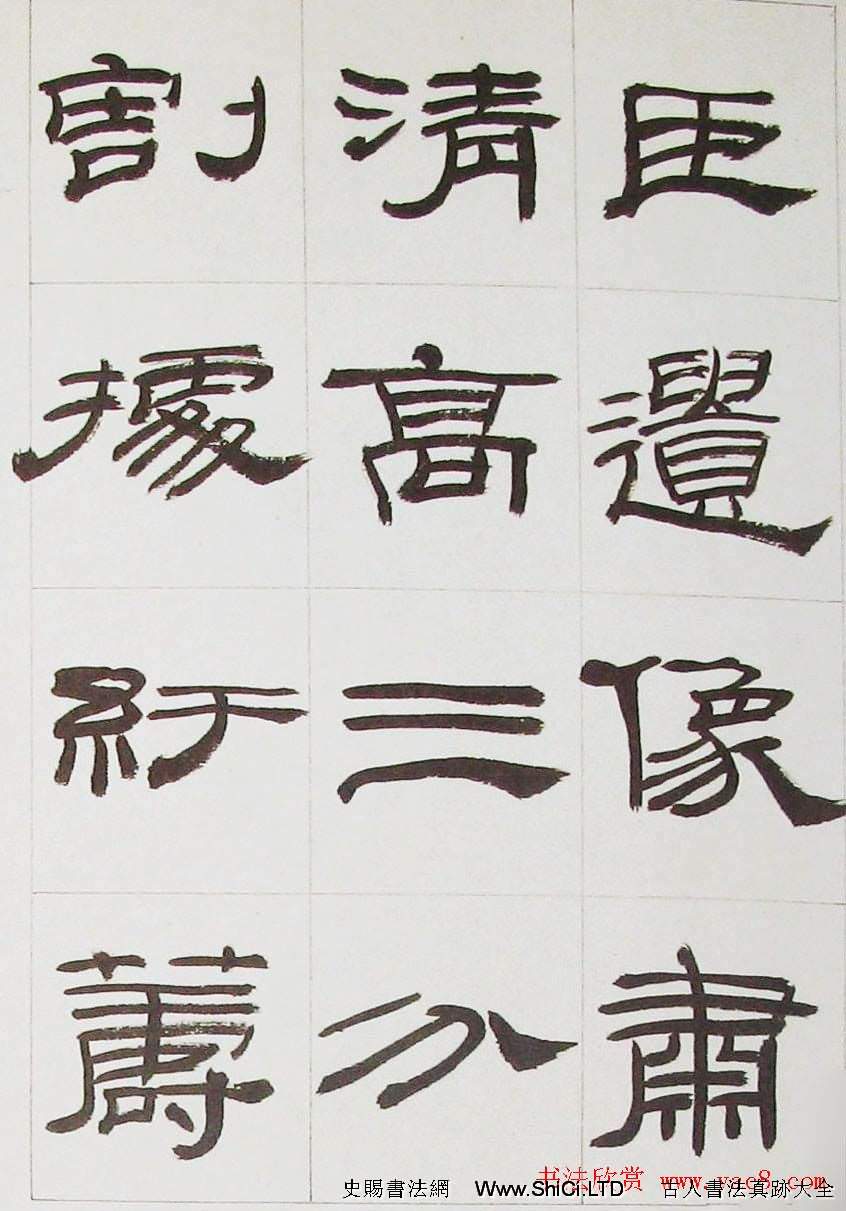 臣遺像肅
清高三分
割據紆籌
书法欣赏 www.yac8.com
史賜書法網 Www.ShiCi.LTD 古人書法真跡大全